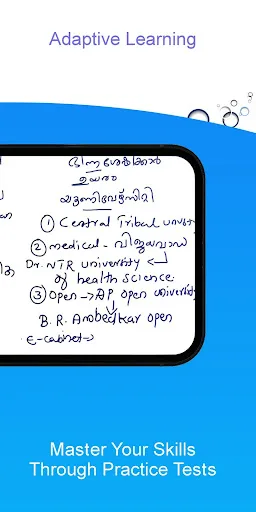 Adaptive Learning
ഭിന്നശേഷിക്കാർ
ഉയരം
യൂണിവേഴ്സിറ്റി
① Central Tribal
② medical - വിജയവാഡ
Dr. NTR university
of health science
③ Open → AP open university
B. R. Ambedkar open
E-cabinet →
Master Your Skills
Through Practice Tests